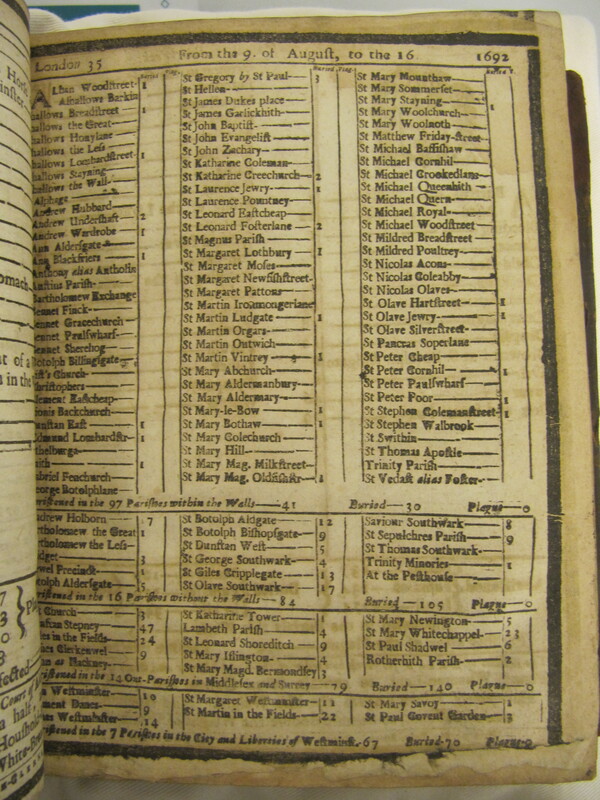 London 35 From the 9. of August, to the 16 1692
Buried Plag.
Buried Plag.
Buried P.
Alban Woodstreet 1
Alhallows Barkin
hallows Breadstreet 1
hallows the Great
hallows Honylane
hallows the Less
hallows Lombardstreet 1
hallows Stayning
hallows the Wall
Alphage
Andrew Hubbard
Andrew Undershaft 2
Andrew Wardrobe 1
Ann Aldersgate
Ann Blackfriers 1
Anthony alias Antholin
Austins Parish
Bartholomew Exchange
Bennet Finck
ennet Gracechurch
ennet Paulswharf
ennet Sherehog
Botolph Billingsgate
rist's Church
hristophers
lement Eastcheap
ionis Backchurch
unstan East 1
Edmund Lombardstr 1
thelburga
aith 1
abriel Fenchurch
eorge Botolphlane
St Gregory by St Paul 3
St Hellen
St James Dukes place
St James Garlickhith
St John Baptist
St John Evangelist
St John Zachary
St Katharine Coleman
St Katharine Creechurch 2
St Laurence Jewry 1
St Laurence Pountney
St Leonard Eastcheap
St Leonard Fosterlane 2
St Magnus Parish
St Margaret Lothbury 1
St Margaret Moses
St Margaret Newfishstreet
St Margaret Pattons
St Martin Ironmongerlane
St Martin Ludgate 1
St Martin Orgars
St Martin Outwich
St Martin Vintrey 1
St Mary Abchurch
St Mary Aldermanbury
St Mary Aldermary
St Mary-le-Bow 1
St Mary Bothaw 1
St Mary Colechurch
St Mary Hill
St Mary Mag. Milkstreet
St Mary Mag. Oldfishstr 1
St Mary Mounthaw
St Mary Sommerset
St Mary Stayning
St Mary Woolchurch 1
St Mary Woolnoth
St Matthew Friday-street
St Michael Bassishaw
St Michael Cornhil
St Michael Crookedlane
St Michael Queenhith
St Michael Quern
St Michael Royal
St Michael Woodstreet
St Mildred Breadstreet
St Mildred Poultrey
St Nicolas Acons
St Nicolas Coleabby
St Nicolas Olaves
St Olave Hartstreet 1
St Olave Jewry 1
St Olave Silverstreet
St Pancras Soperlane
St Peter Cheap
St Peter Cornhil 1
St Peter Paulswharf
St Peter Poor 1
St Stephen Colemanstreet 1
St Stephen Walbrook
St Swithin
St Thomas Apostle
Trinity Parish
St Vedast alias Foster
ristened in the 97 Parishes within the Walls 41 Buried 30 Plague 0
Andrew Holborn 17
artholomew the Great 1
artholomew the Less
ridget 3
ewel Precinct 1
otolph Aldersgate 5
St Botolph Aldgate 12
St Botolph Bishopsgate 9
St Dunstan West 5
St George Southwark 4
St Giles Cripplegate 13
St Olave Southwark 17
Saviour Southwark 8
St Sepulchres Parish 9
St Thomas Southwark
Trinity Minories 1
At the Pesthouse
ristened in the 16 Parishes without the Walls 84 Buried 105 Plague 0
Church 3
nstan Stepney 47
iles in the Fields 24
mes Clerkenwel 9
hn at Hackney
St Katharine Tower 1
Lambeth Parish 4
St Leonard Shoreditch 9
St Mary Islington 4
St Mary Magd. Bermondsey 3
St Mary Newington 5
St Mary Whitechappel 23
St Paul Shadwel 6
Rotherhith Parish 2
ristened in the 14 Out-Parishes in Middlesex and Surrey 79 Buried 140 Plague 0
n Westminster 10
ement Danes 9
us Westminster 14
St Margaret Westminster 11
St Martin in the Fields 22
St Mary Savoy 1
St Paul Covent Garden 3
ristened in the 7 Parishes in the City and Liberties of Westminst. 67 Buried 70 Plague 0